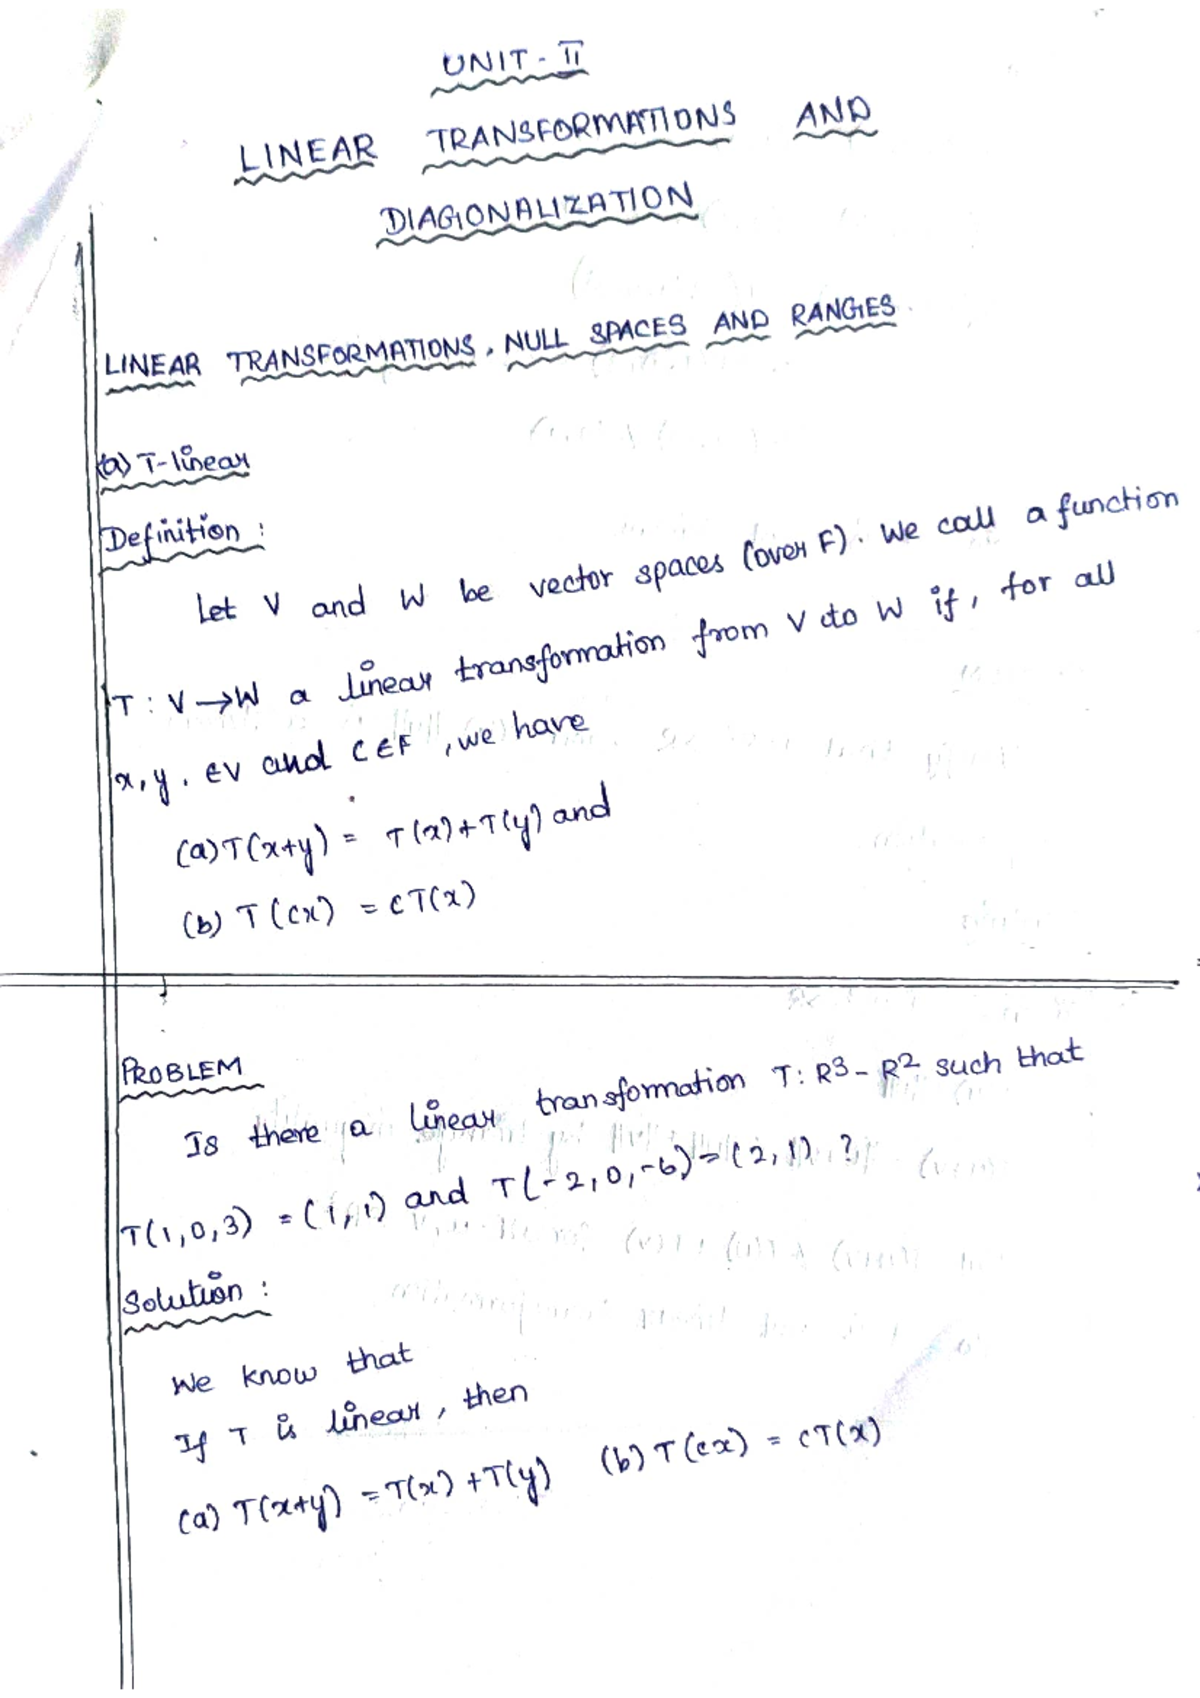 UNIT - II
LINEAR TRANSFORMATIONS AND
DIAGONALIZATION
LINEAR TRANSFORMATIONS, NULL SPACES AND RANGES.
(a) T-linear
Definition :
Let V and W be vector spaces (over F). We call a function
T : V → W a linear transformation from V to W if, for all
x, y. ∈V and C∈F, we have
(a) T(x+y) = T(x)+T(y) and
(b) T(cx) = cT(x)
PROBLEM
Is there a linear transformation T: R³ - R² such that
T(1,0,3) = (1,1) and T(-2,0,-6) = (2,1) ?
Solution :
We know that
If T is linear, then
(a) T(x+y) = T(x) + T(y) (b) T(cx) = cT(x)